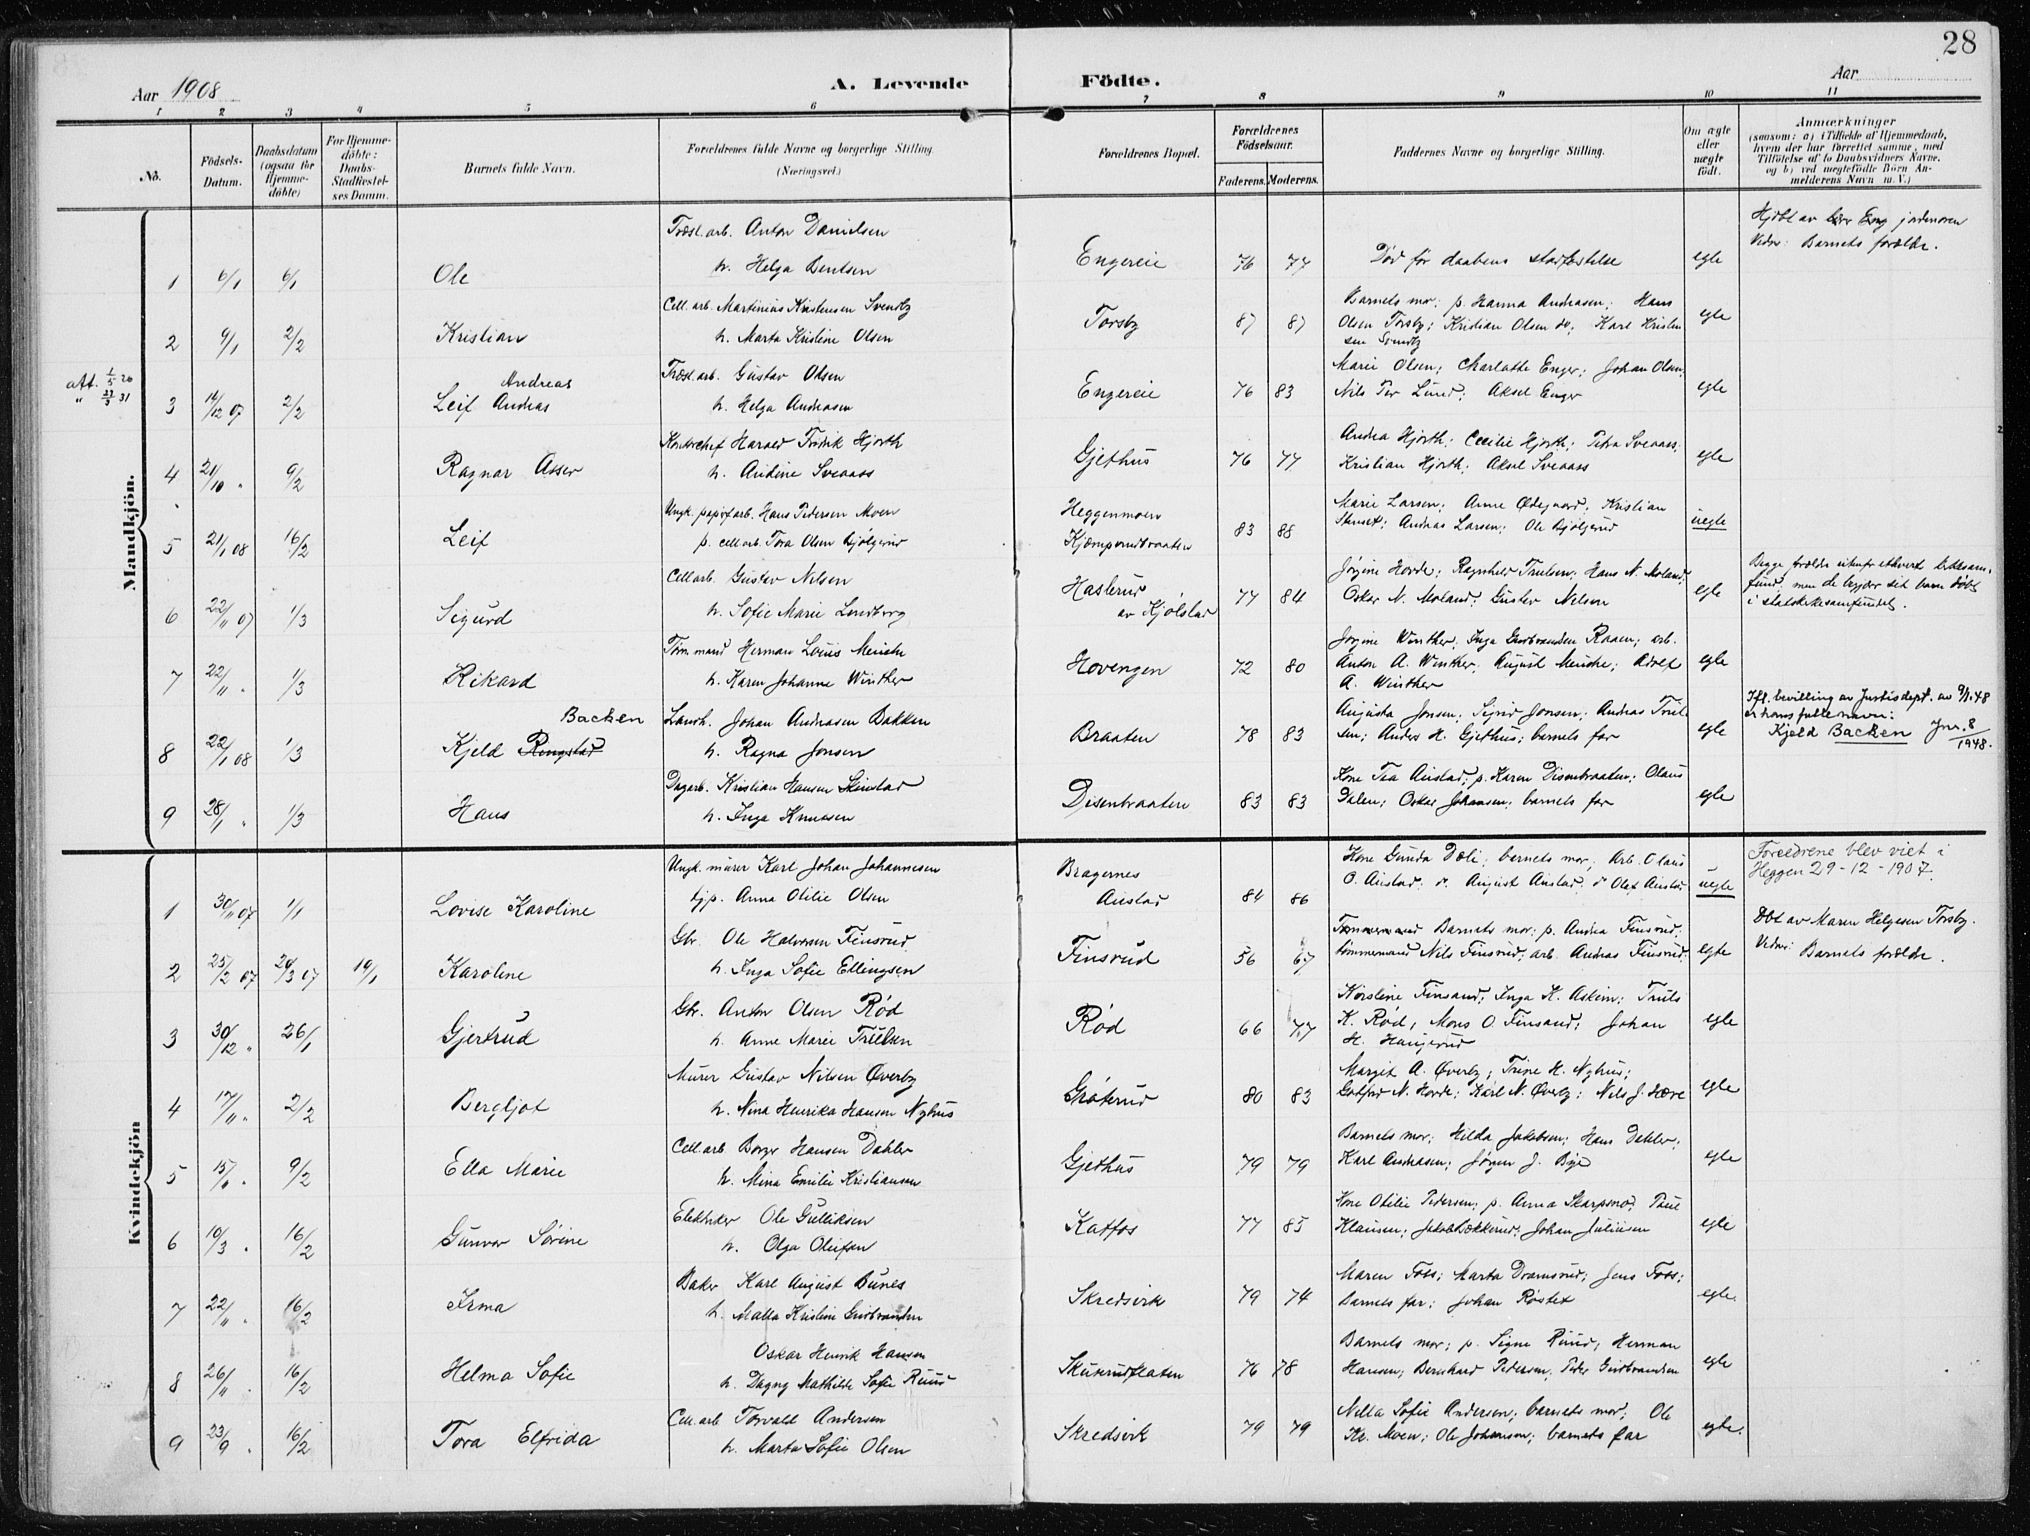 28
Aar 1908
A. Levende Födte.
Aar
1 2 3 4 5 6 7 8 9 10 11
No.
Födsels-Datum.
Daabsdatum (ogsaa for Hjemmedöbte)
For Hjemmedöbte: Daabs-Stadfæstelses Datum.
Barnets fulde Navn.
Forældrenes fulde Navne og borgerlige Stilling.
(Næringsvei.)
Forældrenes Bopæl.
Forældrenes Födselsaar.
Faderens. Moderens.
Faddernes Navne og borgerlige Stilling.
Om ægte eller uægte födt.
Anmærkninger
(saasom: a) i Tilfælde af Hjemmedaab, hvem der har forrettet samme, med Tilföielse af to Daabsvidners Navne. og b) ved uægtefödte Börn Anmelderens Navn m. V.)
Mandkjön.
1 6/1 6/1 Ole
Træsl.arb. Anton Danielsen
h. Helga Bentsen
Engereie 76 77 Død før daabens stadfæstelse egte
Hjdbt av Eng jordmoren
Vidner: Barnets forældre.
2 9/1 2/2 Kristian
Cell. arb. Martinius Kristensen Svendby
h. Marta Kristine Olsen
Torsby 87 87
Barnets mor; p. Hanna Andreasen; Hans
Olsen Torsby; Kristian Olsen do; Karl Kristen
sen Svendby
egte
att. 1/5 26
" 27/3 31
3 14/12 07 2/2 Leif Andreas
Andreas
Træsl.arb. Gustav Olsen
h. Helga Andreasen
Engereie 76 83
Marie Olsen; Charlotte Enger; Johan Olsen;
Nils Per Lund; Aksel Enger
egte
4 21/10 " 9/2 Ragnar Asser
Kontorchef Harald Fredrik Hjorth
h. Andine Sveaass
Gjethus 76 77
Andrea Hjorth; Cecilie Hjorth; Petra Sveaass;
Kristian Hjorth; Aksel Sveaass
egte
5 21/1 08 16/2 Leif
Ungk. papirarb. Hans Pedersen Moen
p. cell.arb. Tora Olsen Bjølgerud
Heggenmoen
Kjæmperudbraaten
83 88
Marie Larsen; Anne Ødegaard; Kristian
Andreas Larsen; Ole Bjølgerud
uegte
6 22/11 07 1/3 Sigurd
Cell.arb. Gustav Nilsen
h. Sofie Marie Lundborg
Haslerud
av Kjølstad
77 84
Jørgine Horde; Ragnhild Trulsen; Hans N. Moland;
Oskar N. Moland; Gustav Nilsen
egte
Begge forældre utenfor ethvert troessam-
fund, men de begjær sit barn døbt
i statskirkesamfundet.
7 22/11 " 1/3 Rikard
Tøm.mand Herman Louis Meniche
h. Karen Johanne Winther
Hovengen 72 80
Jørgine Winther; Inga Gudbrandsen Raaen; arb.
Anton A. Winther; August Meniche; Adolf
A. Winther
egte
8 22/1 08 1/3 Kjeld Ringstad
Backen
Landh. Johan Andreasen Bakken
h. Ragna Jonsen
Braaten 78 83
Augusta Jonsen; Sigrid Jonsen; Andreas Trul-
sen; Anders H. Gjethus; barnets far
egte
Ifl. bevilling av Justisdept. av 9/1.48
er hans fulle navn:
Kjeld Backen Jnr. 8/1948.
9 28/1 " 1/3 Hans
Dagarb. Kristian Hansen
h. Inga Knudsen
Disenbraaten 83 83
Kone Tea Austad; p. Karen Disenbraaten; Olaus
Dalen; Oskar Johansen; barnets far
egte
Kvindekjön
1 30/11 07 1/1 Lovise Karoline
Ungk. murer Karl Johan Johannesen
tjp. Anna Otilie Olsen
Bragernes
Austad
84 86
Kone Gunda Dæli; barnets mor; Arb. Olaus
O. Austad; d. August Austad; d. Olaf Austad
uegte
Foreldrene blev viet i
Heggen 29-12-1907.
2 25/2 07 29/3 07 19/1 Karoline
Gbr. Ole Halvorsen Finsrud
h. Inga Sofie Ellingsen
Finsrud 56 67
Tømmermand Barnets mor; p. Andrea Finsrud;
tømmermand Nils Finsrud; arb. Andreas Finsrud.
egte
Dbt av Maren Helgesen Torsby.
Vidner: Barnets forældre.
3 30/12 " 26/1 Gjertrud
Gbr. Anton Olsen Rød
h. Anne Marie Trulsen
Rød 66 77
Kirstine Finsand; Inga K. Askim; Truls
K. Rød; Mons O. Finsand; Johan
H. Haugerud
egte
4 17/11 " 2/2 Bergljot
Murer Gustav Nilsen Øverby
h. Nina Henrika Hansen Nyhus
Grøterud 80 83
Margit A. Øverby; Trine H. Nyhus;
Gotfred N. Horde; Karl N. Øverby; Nils J. Horve
egte
5 15/6 " 9/2 Ella Marie
Cell.arb Borger Hansen Dahler
h. Mina Emilie Kristiansen
Gjethus 79 79
Barnets mor; Hilda Jakobsen; Hans Dahler;
Karl Andreasen; Jørgen J. Bye
egte
6 10/3 " 16/2 Gunvor Sørine
Elektriker Ole Gulliksen
h. Olga Olufsen
Katfos 77 85
Kone Otilie Pedersen; p. Anna Skarpsno; Paul
Klausen; Jakob Løkkerud; Johan Juliussen
egte
7 22/11 " 16/2 Irma
Baker Karl August Bunes
h. Malla Kristine Gudbrandsen
Skredsvik 79 74
Maren Foss; Marta Dramsrud; Jens Foss;
Barnets far; Johan Røstet
egte.
8 26/11 " 16/2 Helma Sofie
Oskar Henrik Hansen
h. Dagny Mathilde Sofie Ruud
Skuterudflaten 76 78
Barnets mor; p. Signe Ruud; Herman
Hansen; Bernhard Pedersen; Peder Gudbrandsen
egte
9 23/9 " 16/2 Tora Elfrida
Cell.arb Torvald Andersen
h. Marta Sofie Olsen
Skredsvik 79 79
Nella Sofie Andersen; barnets mor; Ole
Kr. Moen; Ole Johansen; barnets far
egte.